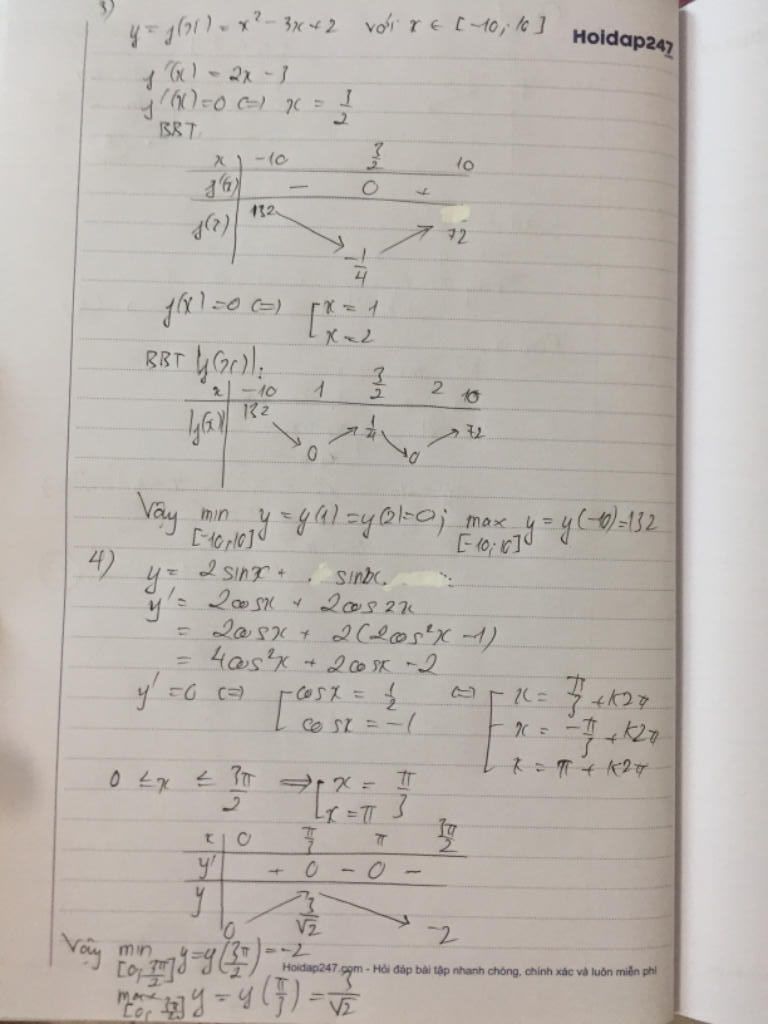 3)
y = f(x) = x² - 3x + 2 với x ∈ [-10; 10]
Hoidap247
f'(x) = 2x - 3
f'(x) = 0 <=> x = 3/2
BBT
x | -10 3/2 10
f'(x) | - 0 +
f(x) | 132 ↘ -1/4 ↗ 72
f(x) = 0 <=> [ x = 1
x = 2
BBT |f(x)|:
x | -10 1 3/2 2 10
|f(x)| | 132 ↘ 0 ↗ 1/4 ↘ 0 ↗ 72
Vậy min y = y(1) = y(2) = 0; max y = y(-10) = 132
[-10; 10] [-10; 10]
4) y = 2sinx + sin2x
y' = 2cosx + 2cos2x
= 2cosx + 2(2cos²x - 1)
= 4cos²x + 2cosx - 2
y' = 0 <=> [ cosx = 1/2 <=> [ x = π/3 + k2π
cosx = -1 x = -π/3 + k2π
x = π + k2π
0 ≤ x ≤ 3π/2 => [ x = π/3
x = π
x | 0 π/3 π 3π/2
y' | + 0 - 0 -
y | 0 ↗ 3/√2 ↘ -2
Vậy min y = y(3π/2) = -2
[0; 3π/2]
Hoidap247.com - Hỏi đáp bài tập nhanh chóng, chính xác và luôn miễn phí
max y = y(π/3) = 3/√2
[0; 3π/2]